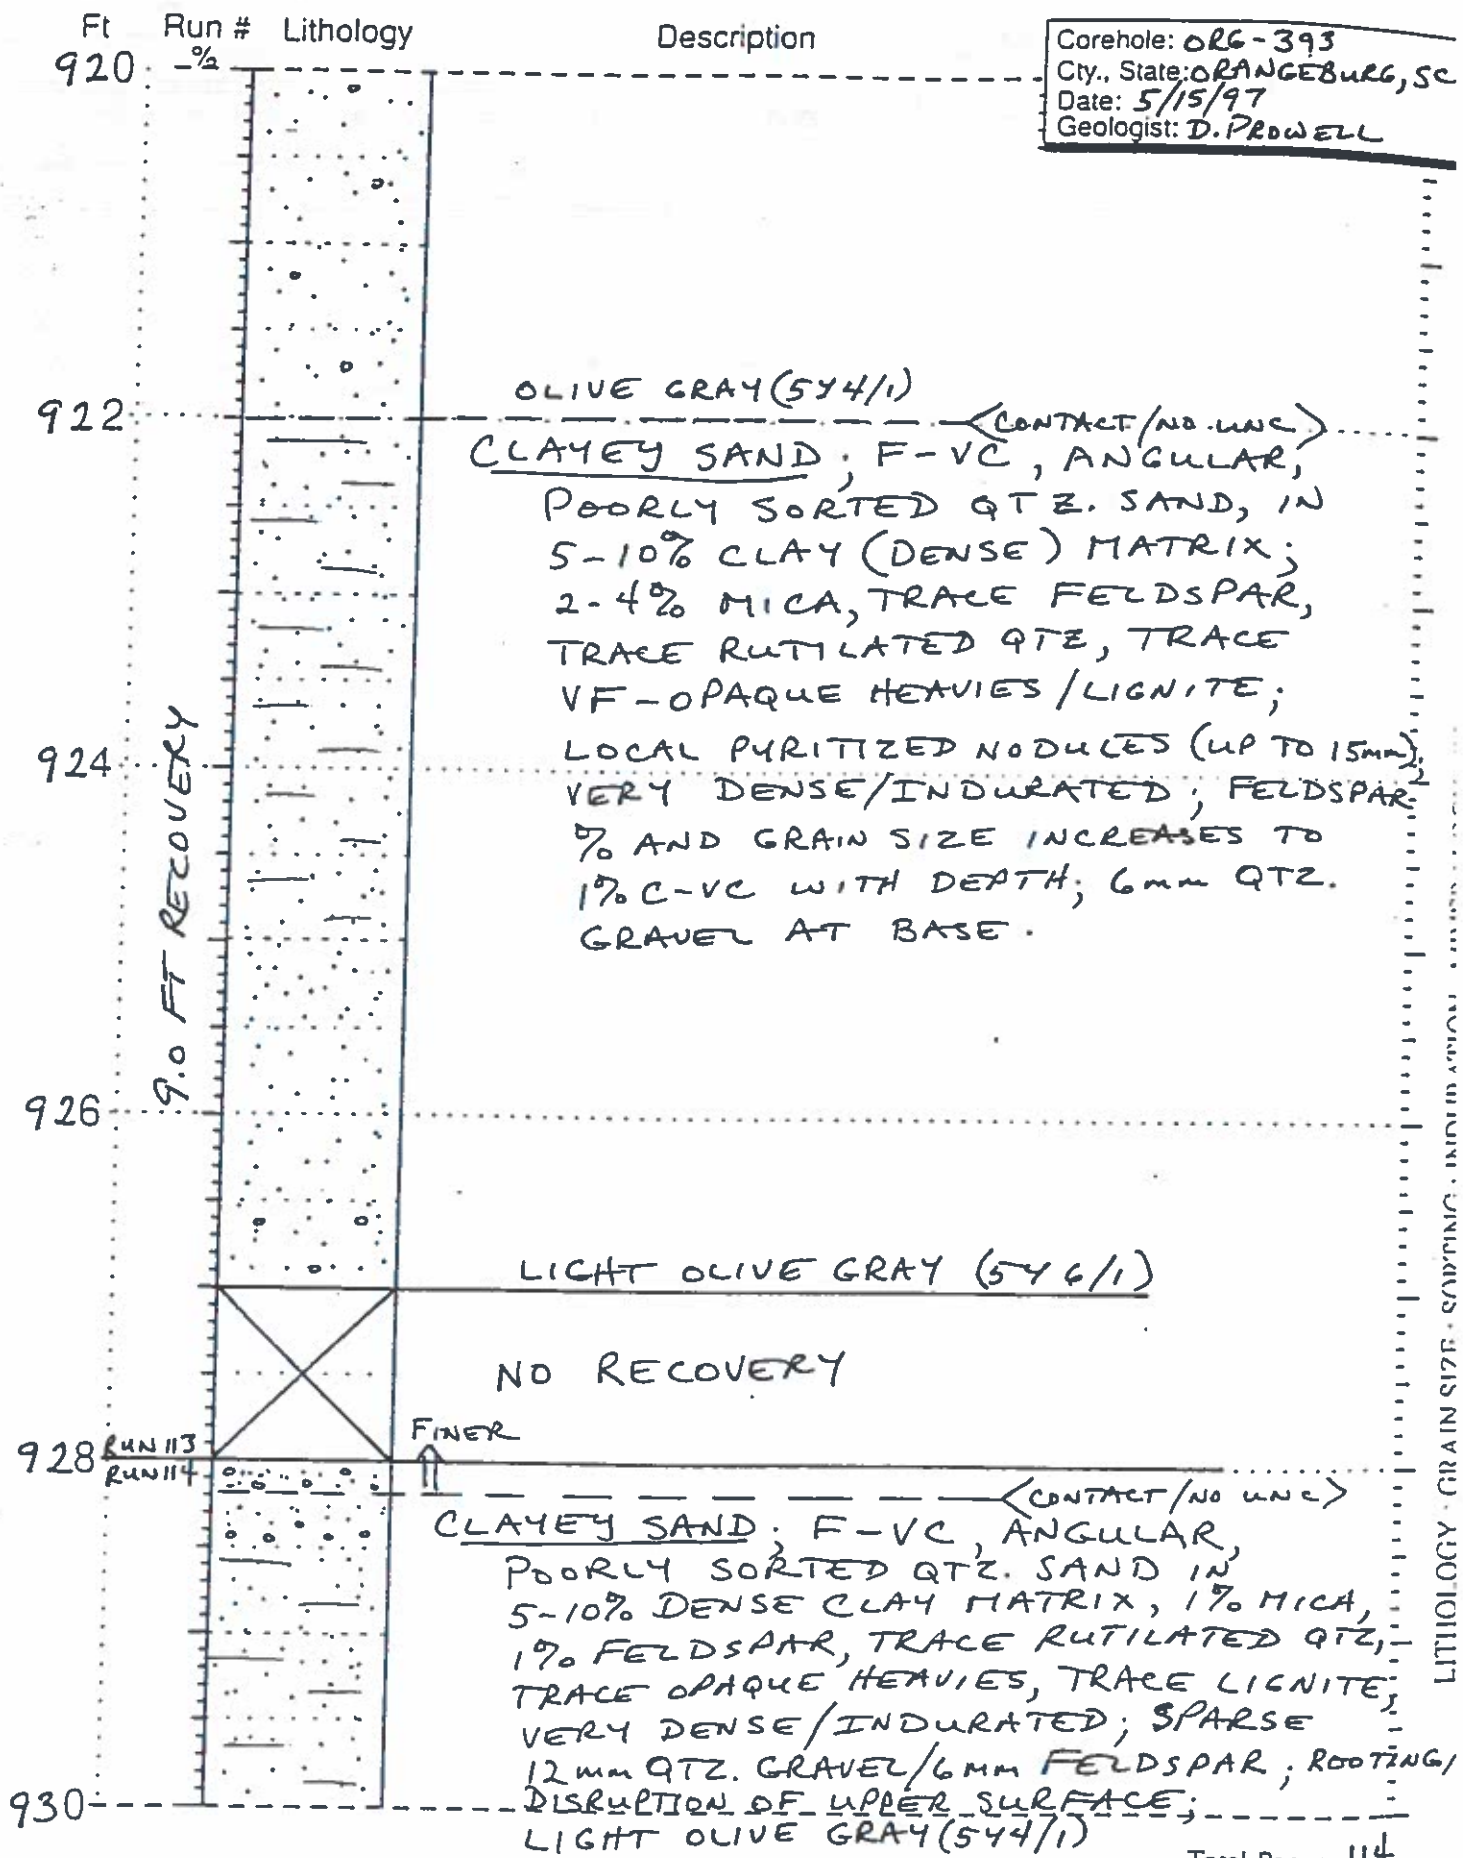 Ft Run # Lithology Description
-%
Corehole: ORG-393
Cty., State: ORANGEBURG, SC
Date: 5/15/97
Geologist: D. PROWELL
920
OLIVE GRAY (5Y4/1)
922
<CONTACT/NO UNC>
CLAYEY SAND; F-VC, ANGULAR,
POORLY SORTED QTZ. SAND, IN
5-10% CLAY (DENSE) MATRIX;
2-4% MICA, TRACE FELDSPAR,
TRACE RUTILATED QTZ, TRACE
VF-OPAQUE HEAVIES/LIGNITE;
LOCAL PYRITIZED NODULES (UP TO 15mm);
924
VERY DENSE/INDURATED; FELDSPAR
% AND GRAIN SIZE INCREASES TO
1% C-VC WITH DEPTH; 6mm QTZ.
GRAVEL AT BASE.
9.0 FT RECOVERY
926
LIGHT OLIVE GRAY (5Y6/1)
NO RECOVERY
FINER
928
RUN 113
RUN 114
<CONTACT/NO UNC>
CLAYEY SAND; F-VC, ANGULAR,
POORLY SORTED QTZ. SAND IN
5-10% DENSE CLAY MATRIX, 1% MICA,
1% FELDSPAR, TRACE RUTILATED QTZ,
TRACE OPAQUE HEAVIES, TRACE LIGNITE;
VERY DENSE/INDURATED; SPARSE
12mm QTZ. GRAVEL/6mm FELDSPAR; ROOTING/
930
DISRUPTION OF UPPER SURFACE;
LIGHT OLIVE GRAY (5Y4/1)
114
LITHOLOGY · GRAIN SIZE · SORTING · INDURATION